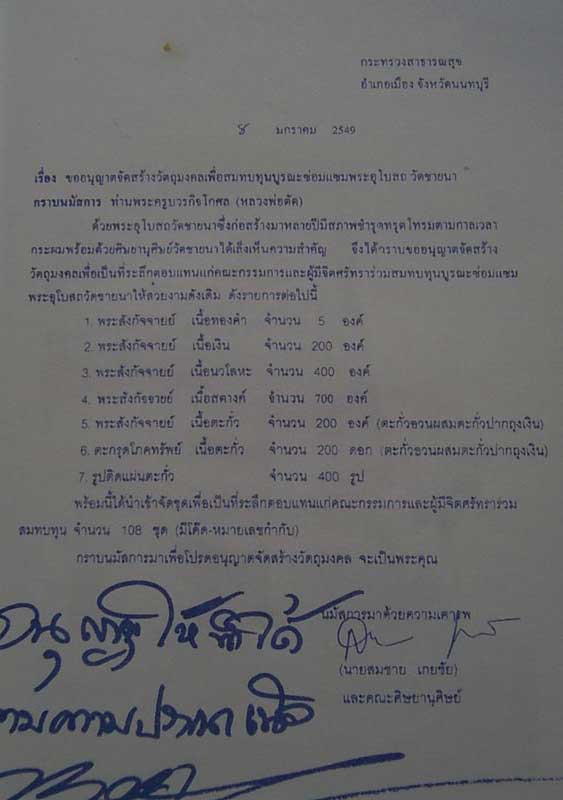 กระทรวงสาธารณสุข
อำเภอเมือง จังหวัดนนทบุรี
๘ มกราคม 2549
เรื่อง ขออนุญาตจัดสร้างวัตถุมงคลเพื่อสมทบทุนบูรณะซ่อมแซมพระอุโบสถ วัดชายนา
กราบนมัสการ ท่านพระครูบวรกิจโกศล (หลวงพ่อตัด)
ด้วยพระอุโบสถวัดชายนาซึ่งก่อสร้างมาหลายปีมีสภาพชำรุดทรุดโทรมตามกาลเวลา
กระผมพร้อมด้วยศิษยานุศิษย์วัดชายนาได้เล็งเห็นความสำคัญ จึงได้กราบขออนุญาตจัดสร้าง
วัตถุมงคลเพื่อเป็นที่ระลึกตอบแทนแก่คณะกรรมการและผู้มีจิตศรัทธาร่วมสมทบทุนบูรณะซ่อมแซม
พระอุโบสถวัดชายนาให้สวยงามดังเดิม ดังรายการต่อไปนี้
1. พระสังกัจจายย์ เนื้อทองคำ จำนวน 5 องค์
2. พระสังกัจจายย์ เนื้อเงิน จำนวน 200 องค์
3. พระสังกัจจายย์ เนื้อนวโลหะ จำนวน 400 องค์
4. พระสังกัจจายย์ เนื้อสตางค์ จำนวน 700 องค์
5. พระสังกัจจายย์ เนื้อตะกั่ว จำนวน 200 องค์ (ตะกั่วอวนผสมตะกั่วปากถุงเงิน)
6. ตะกรุดโภคทรัพย์ เนื้อตะกั่ว จำนวน 200 ดอก (ตะกั่วอวนผสมตะกั่วปากถุงเงิน)
7. รูปติดแผ่นตะกั่ว จำนวน 400 รูป
พร้อมนี้ได้นำเข้าจัดชุดเพื่อเป็นที่ระลึกตอบแทนแก่คณะกรรมการและผู้มีจิตศรัทธาร่วม
สมทบทุน จำนวน 108 ชุด (มีโค๊ด-หมายเลขกำกับ)
กราบนมัสการมาเพื่อโปรดอนุญาตจัดสร้างวัตถุมงคล จะเป็นพระคุณ
นมัสการมาด้วยความเคารพ
อนุญาตให้ได้
(นายสมชาย เกยชัย)
และคณะศิษยานุศิษย์
ตามความปรารถนา